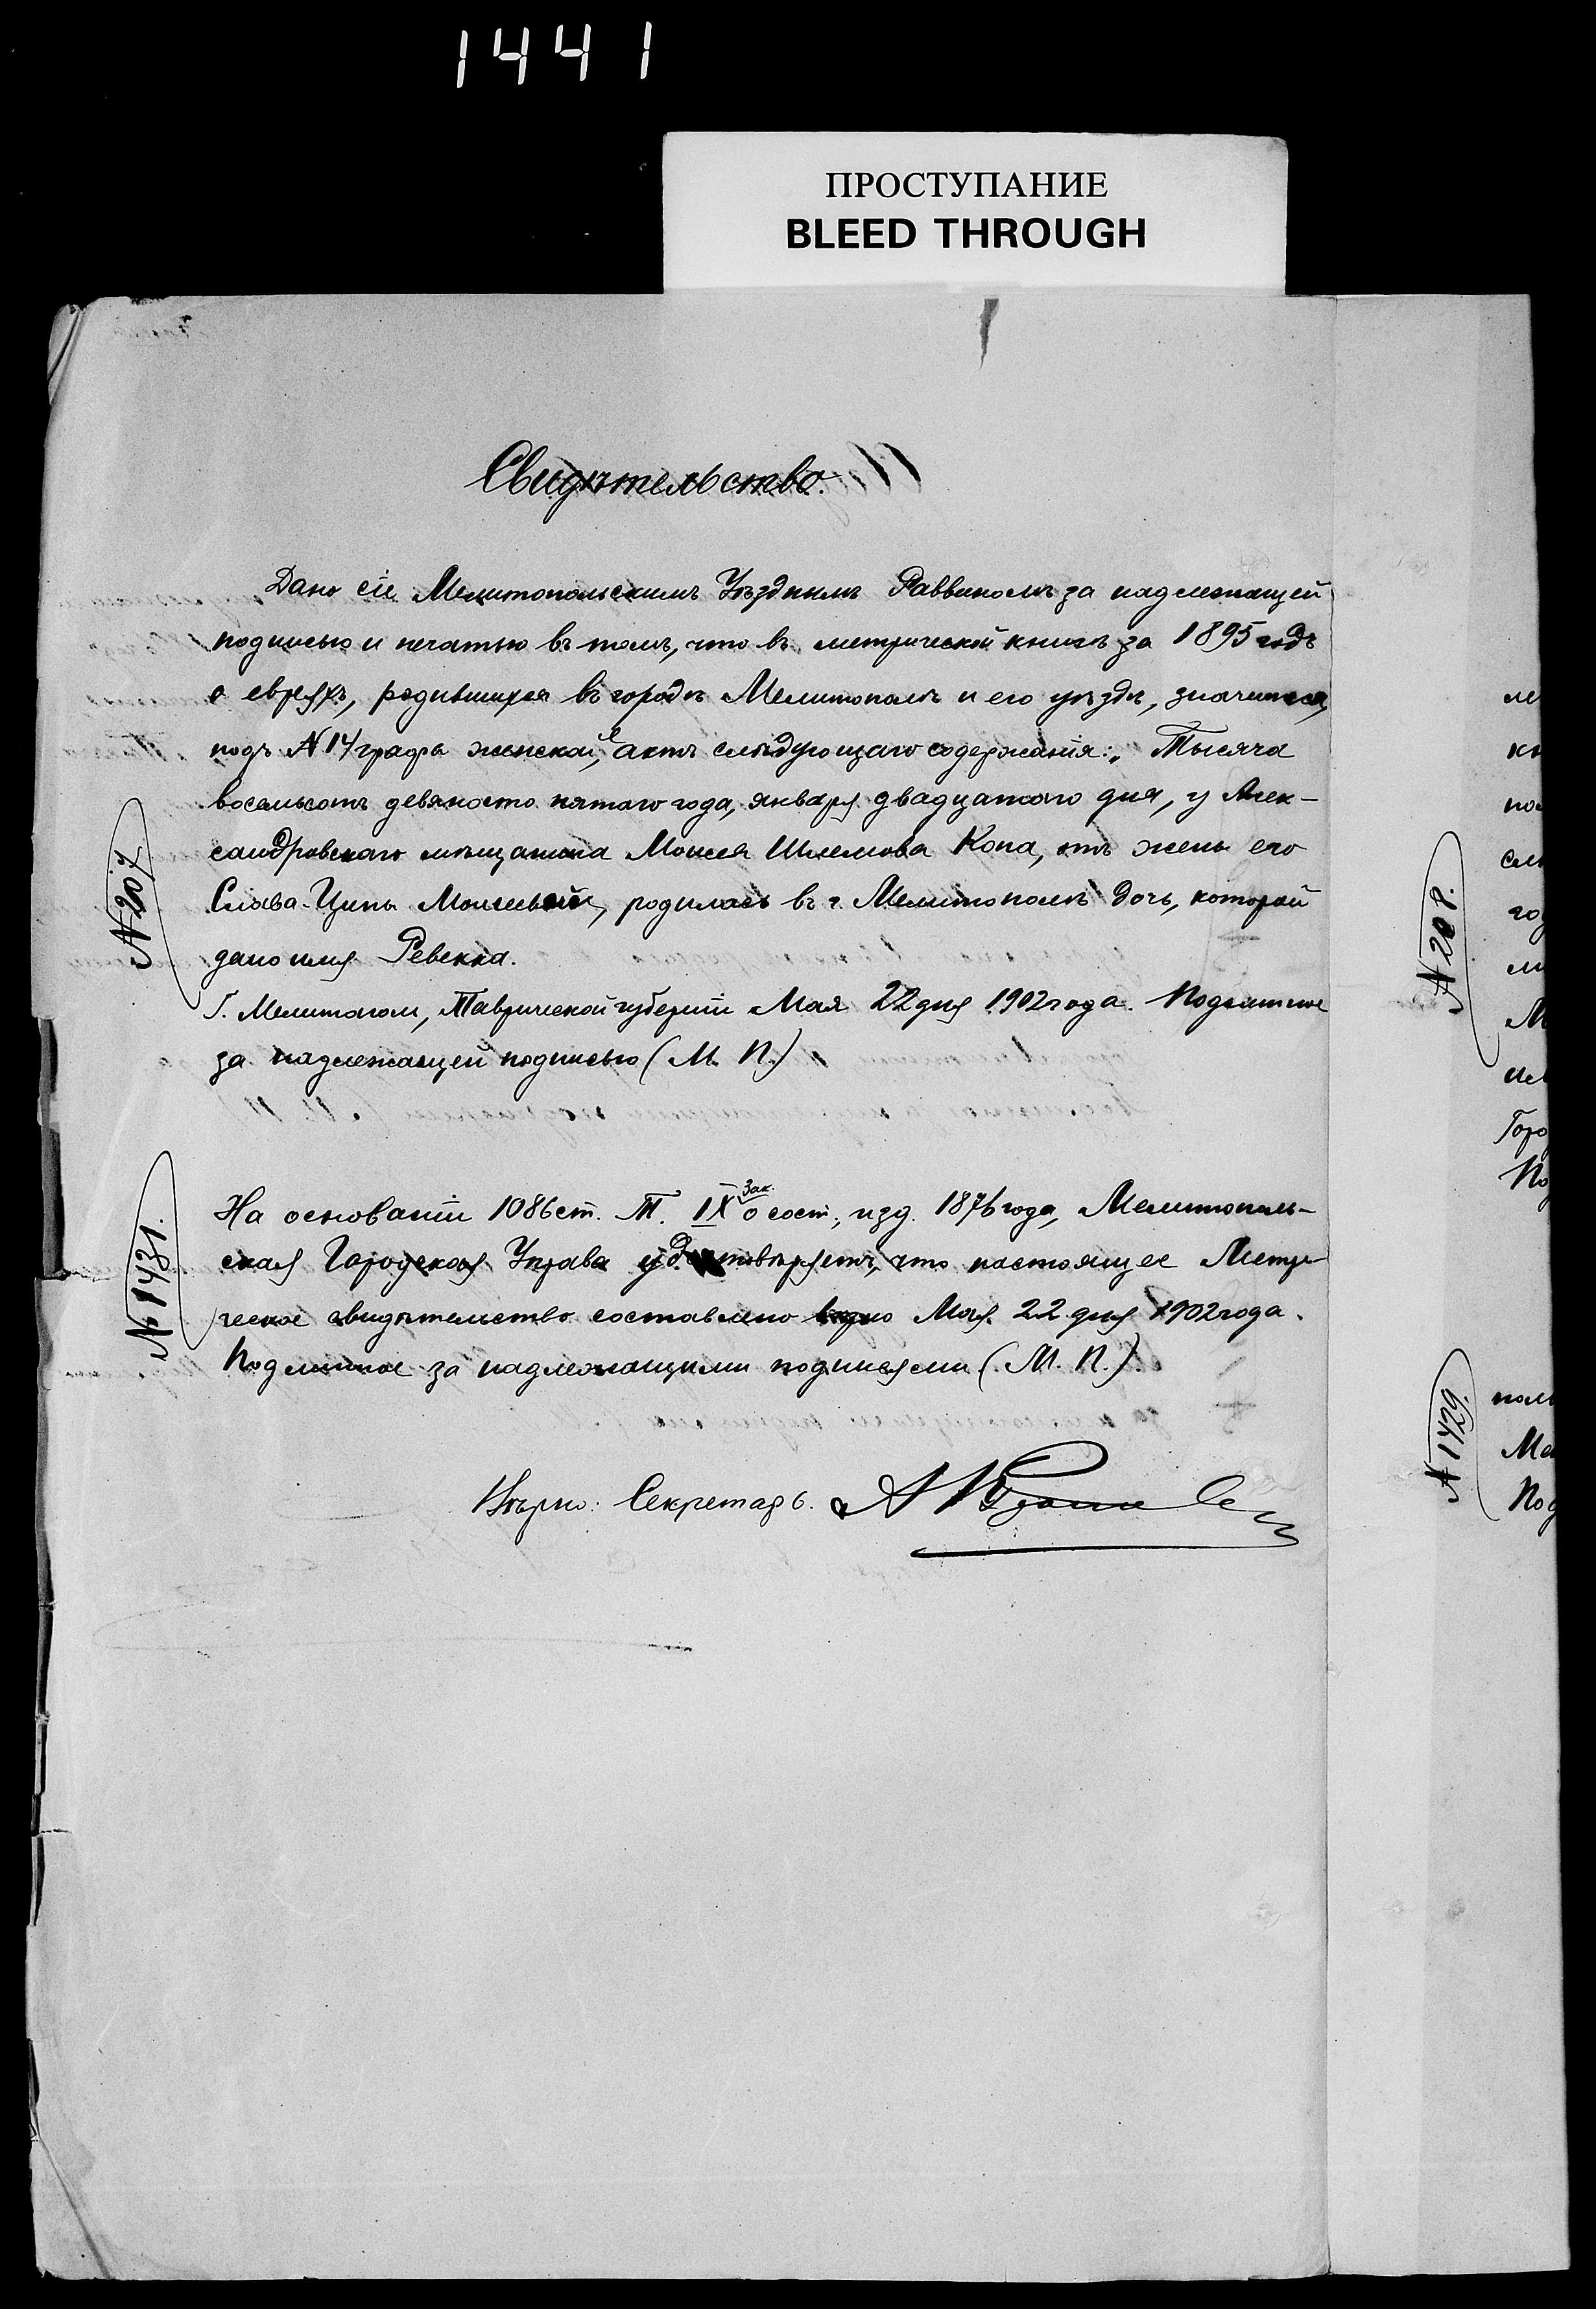 1441
ПРОСТУПАНИЕ
BLEED THROUGH
Свидѣтельство.
Дано сіе Мелитопольскимъ Уѣзднымъ Раввиномъ за надлежащей
подписью и печатью въ томъ, что въ метрической книгѣ за 1895 годъ
о евреяхъ, родившихся въ городѣ Мелитополѣ и его уѣздѣ, значится,
подъ № 14 графы женской, актъ слѣдующаго содержанія: „Тысяча
восемьсотъ девяносто пятаго года, января двадцатаго дня, у Алек-
сандровскаго мѣщанина Моисея Шлемова Копа, отъ жены его
Слава-Ципы, родилась въ г. Мелитополѣ дочь, которой
дано имя Ревекка.
Г. Мелитополь, Таврической губерніи Мая 22 дня 1902 года. Подлинное
за надлежащей подписью (М. П.)
№ 207
На основаніи 1086 ст. Т. IX Зак. о сост., изд. 1876 года, Мелитополь-
ская Городская Управа удостовѣряетъ, что настоящее Метри-
ческое свидѣтельство составлено вѣрно Мая 22 дня 1902 года.
Подлинное за надлежащими подписями (М. П.).
№ 1431.
Вѣрно: Секретарь.
№ 208.
ле
кн
по
слѣ
год
М
им
Горо
По
№ 1429.
поль
Ме
Под